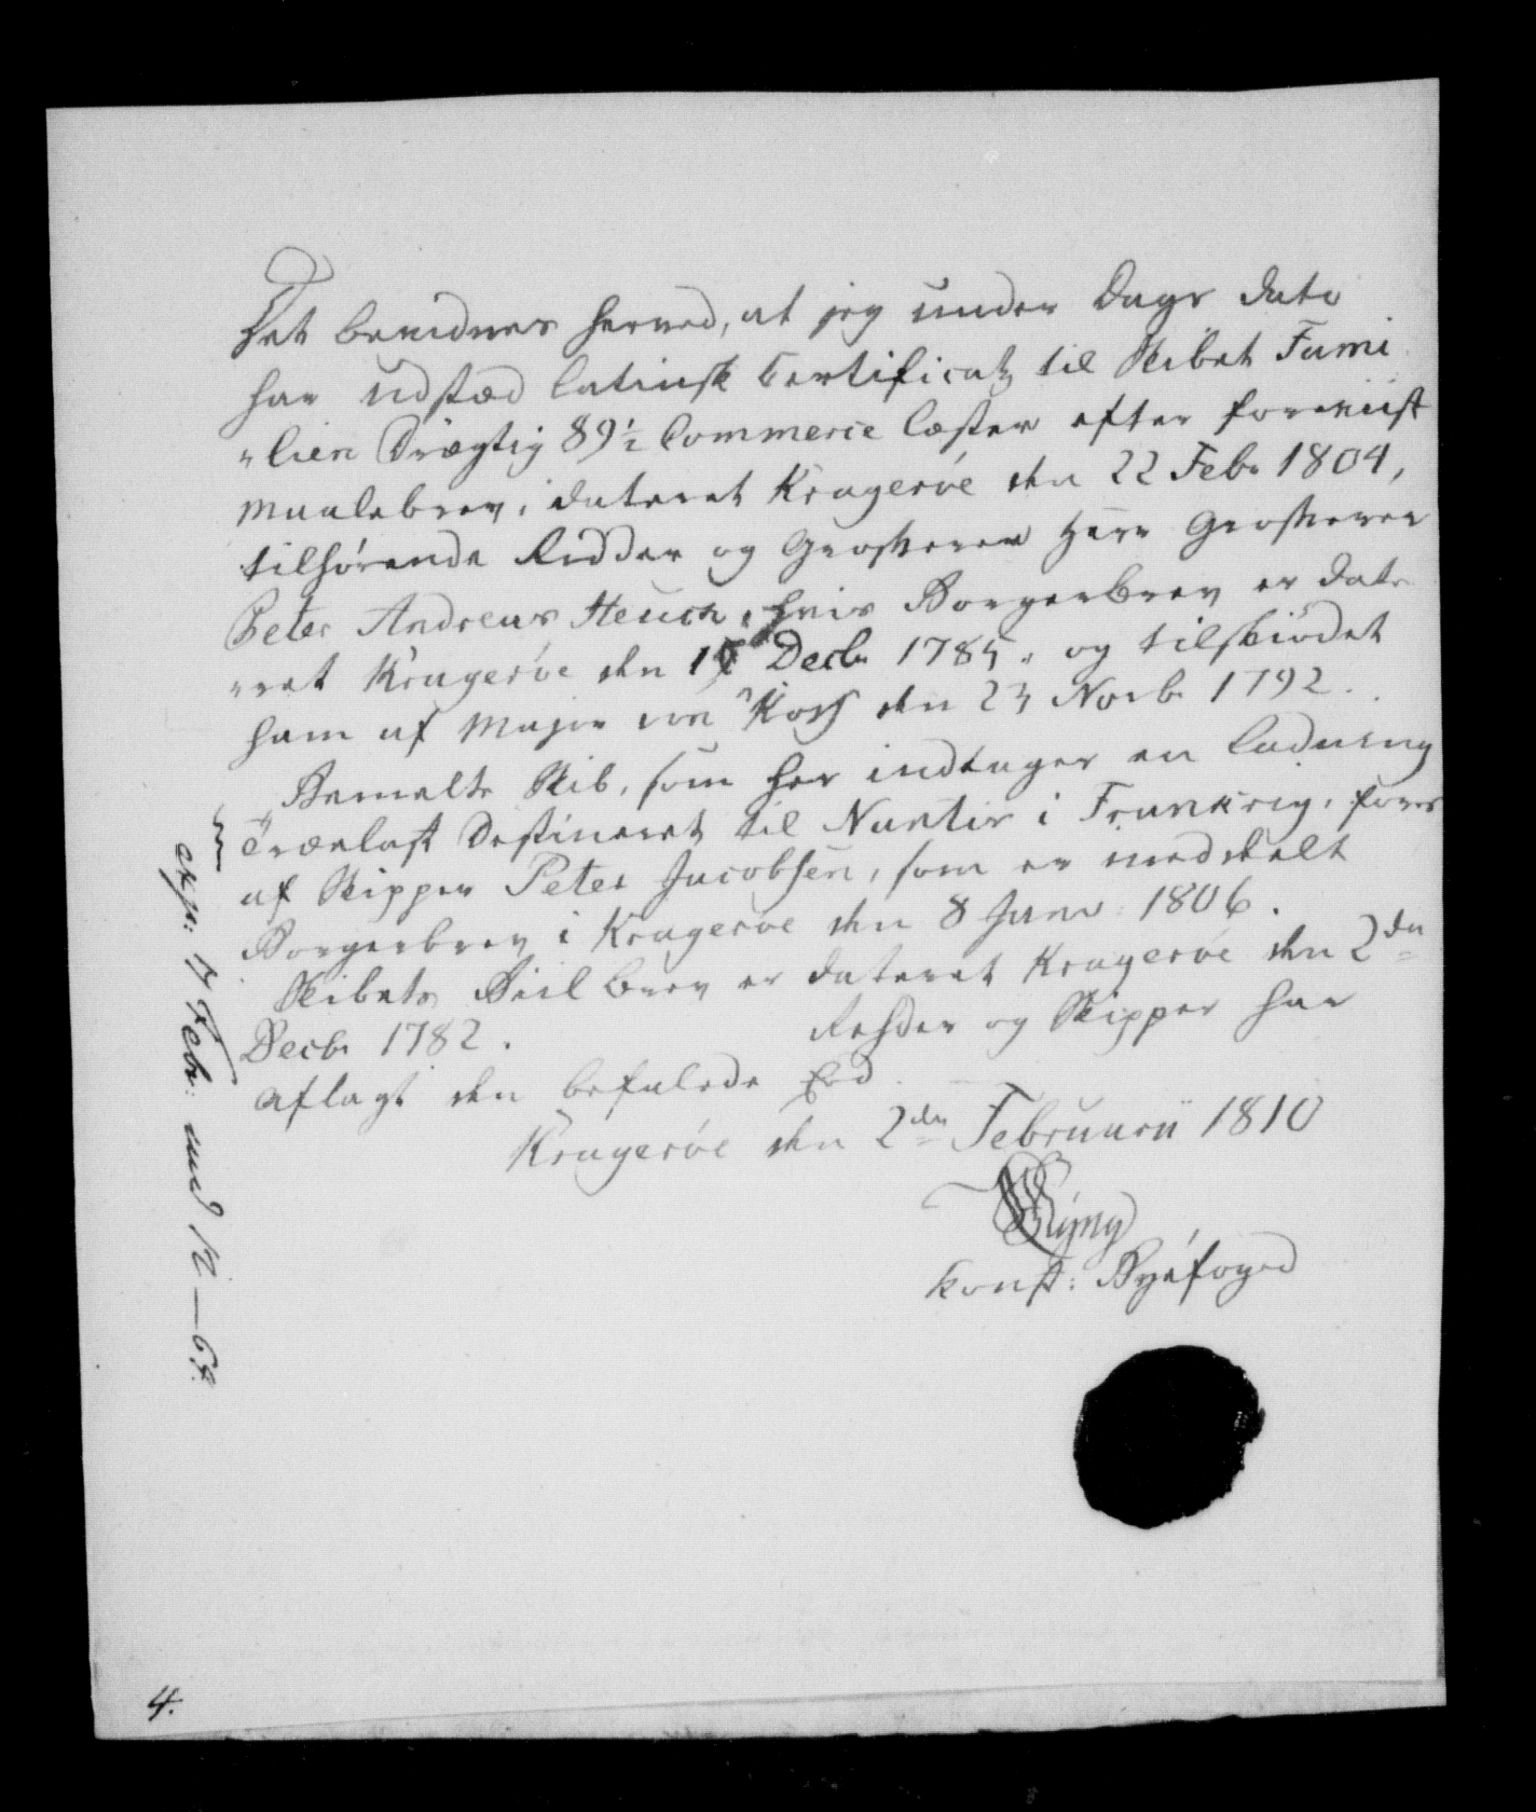 Det bevidnes herved, at jeg under Dags dato
har udstæd latinsk Certificat til Skibet Fami
„lien Drægtig 89½ Commerce læster efter foreviist
Maalebrev, dateret Kragerøe den 22 Febr 1804,
tilhørende Ridder og Grosserer Herr Grosserer
Peter Andreas Heuch, hvis Borgerbrev er date
„ret Kragerøe den Decbr 1785, og tilskiødet
ham af Major von Koss den 23 Novbr 1792.
Bemelte Skib, som her indtager en Ladning
Trælast Destineret til Nantis i Frankrig, føres
af Skipper Peter Jacobsen, som er meddeelt
Borgerbrev i Kragerøe den 8 Janv: 1806.
Skibets Biilbrev er dateret Kragerøe den 2den
Decbr 1782. Rehder og Skipper har
aflagt den befalede Eed.
Kragerøe den 2den Februarii 1810
konst: Byefoged
exp: Febr: med N – 64.
4.